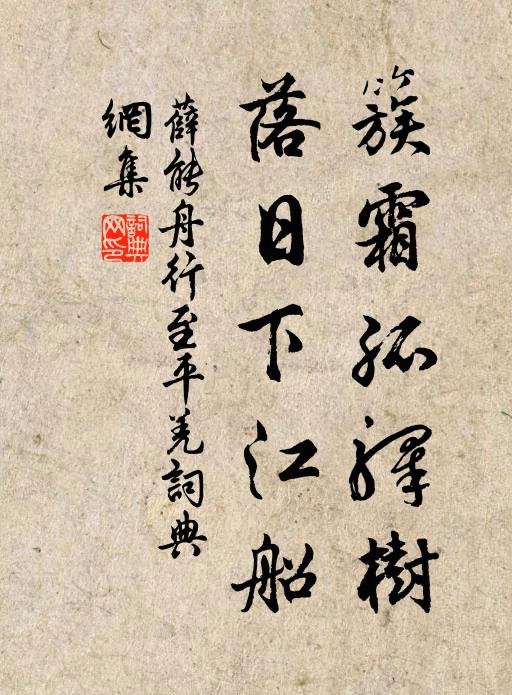 簇霜孤驛樹
落日下江船
薛能舟行至平羌詞典
網集
詞典
网印